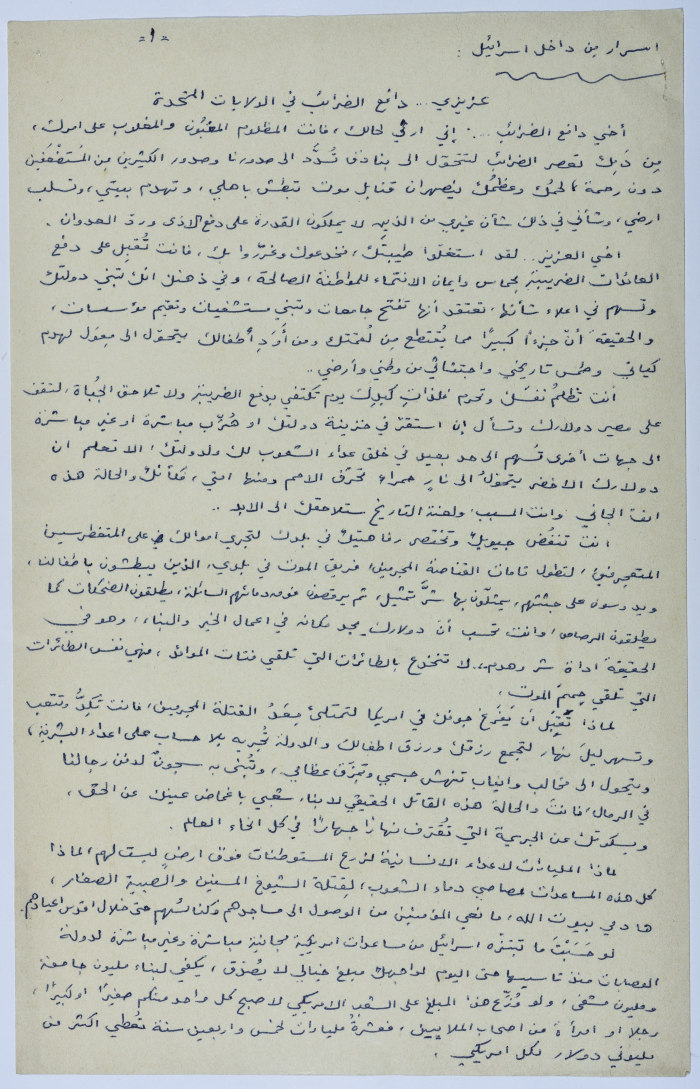 = ١ =
اسرار من داخل اسرائيل :
عزيزي ... دافع الضرائب في الولايات المتحدة
أخي دافع الضرائب ... إني ارثي لحالك ، فانت المظلوم المغبون والمغلوب على امرك ،
مِن دَمِك تعصر الضرائب لتتحوّل الى بنادق تُسدَّد الى صدورنا وصدور الكثيرين من المُستضعَفين
دون رحمة ، لحمك وعظمُك ينصهران قنابل موت تبطش باهلي ، وتهدم بيتي ، وتسلب
ارضي ، وشأني في ذلك شأن غيري من الذين لا يملكون القدرة على دفع الاذى وردّ العدوان .
اخي العزيز .. لقد استغلّوا طيبتَك ، فخدعوك وغرّروا بك ، فانت تُقبل على دفع
العائدات الضريبية بحماس وايمان الانتماء للمواطنة الصالحة ، وفي ذهنك انك تبني دولتك
وتسهم في اعلاء شأنها ، تعتقد أنها تفتح جامعات وتبني مستشفيات وتقيم مؤسسات ،
والحقيقة أنّ جزءاً كبيرًا مما يُقتطع من لُقمتك ومن أَوَدِ أطفالك يتحوّل الى مِعوَل لهدم
كياني وطمس تاريخي واجتثاثي من وطني وأرضي ..
أنت تظلمُ نفسَك وتحرم فلذاتِ كبدِك يوم تكتفي بدفع الضريبة ولا تلاحق الجُباة ، لتقف
على مصير دولارك وتسأل إن استقرّ في خزينة دولتك او هُرّب مباشرة او غير مباشرة
الى جهات أخرى تُسهم الى حد بعيد في خلق عداء الشعوب لك ولدولتك ، الا تعلم ان
دولارك الاخضر يتحوّلُ الى نارٍ حمراء تحرّق الامم ومنها امتي ، فكأنك والحالة هذه
انت الجاني وانت المسبب ولعنة التاريخ ستلاحقك الى الابد ..
انت تنفُض جيوبكَ وتختصر رفاهيتك في بلدك لتجري اموالك على المتغطرسين
المتعجرفين ، لتطول قامات القناصة المجرمين ، فريق الموت في بلدي ، الذين يبطشون باطفالنا ،
ويدوسون على جثثهم ، يمثلّون بها شرَّ تمثيل ، ثم يرقصون فوق دمائهم السائلة ، يطلقون الضحكات كما
يطلقون الرصاص ، وانت تحسب أنّ دولارك يجد مكانه في اعمال الخير والبناء ، وهو في
الحقيقة اداة شر وهدم ... لا تنخدع بالطائرات التي تلقي فتات الموائد ، فهي نفس الطائرات
التي تلقي حِممَ الموت ،
لماذا تقبَل أن يَفرَغ جوفك في امريكا لتمتلئ مِعَدُ القتلة المجرمين ، فانت تَكِدُّ وتتعب
وتسهر ليلَ نهار لتجمع رزقك ورزق اطفالك والدولة تُجريه بلا حساب على اعداء البشرية ،
ويتحول الى مخالب وانياب تنهش جسمي وتمزّق عظامي ، وتُبنى به سجونٌ لدفن رجالنا
في الرمال ، فانتَ والحالة هذه القاتل الحقيقي لابناء شعبي باغماض عينيك عن الحق ،
وبسكوتك عن الجريمة التي تُقتَرف نهارًا جهارًا في كل انحاء العالم .
لماذا المليارات لاعداء الانسانية لزرع المستوطنات فوق ارضٍ ليست لهم ، لماذا
كل هذه المساعدات لمصاصي دماء الشعوب ، لِقتلة الشيوخ المسنين والصبية الصغار ،
هادمي بيوت الله ، مانعي المؤمنين من الوصول الى مساجدهم وكنائسهم حتى خلال اقدس اعيادهم .
لو حَسَبْتَ ما تبتزّه اسرائيل من مساعدات امريكية مجانية مباشرة وغير مباشرة لدولة
العصابات منذ تاسيسها حتى اليوم لواجهك مبلغ خيالي لا يُصدَّق ، يكفي لبناء مليون جامعة
ومليون مشفى ، ولو وُزّع هذا المبلغ على الشعب الامريكي لاصبح كل واحد منكم صغيرًا او كبيرًا ،
رجلاً او امرأة من اصحاب الملايين ، فعشرةُ مليارات لخمس واربعين سنة تُعطي اكثر من
مليوني دولار لكل امريكي .